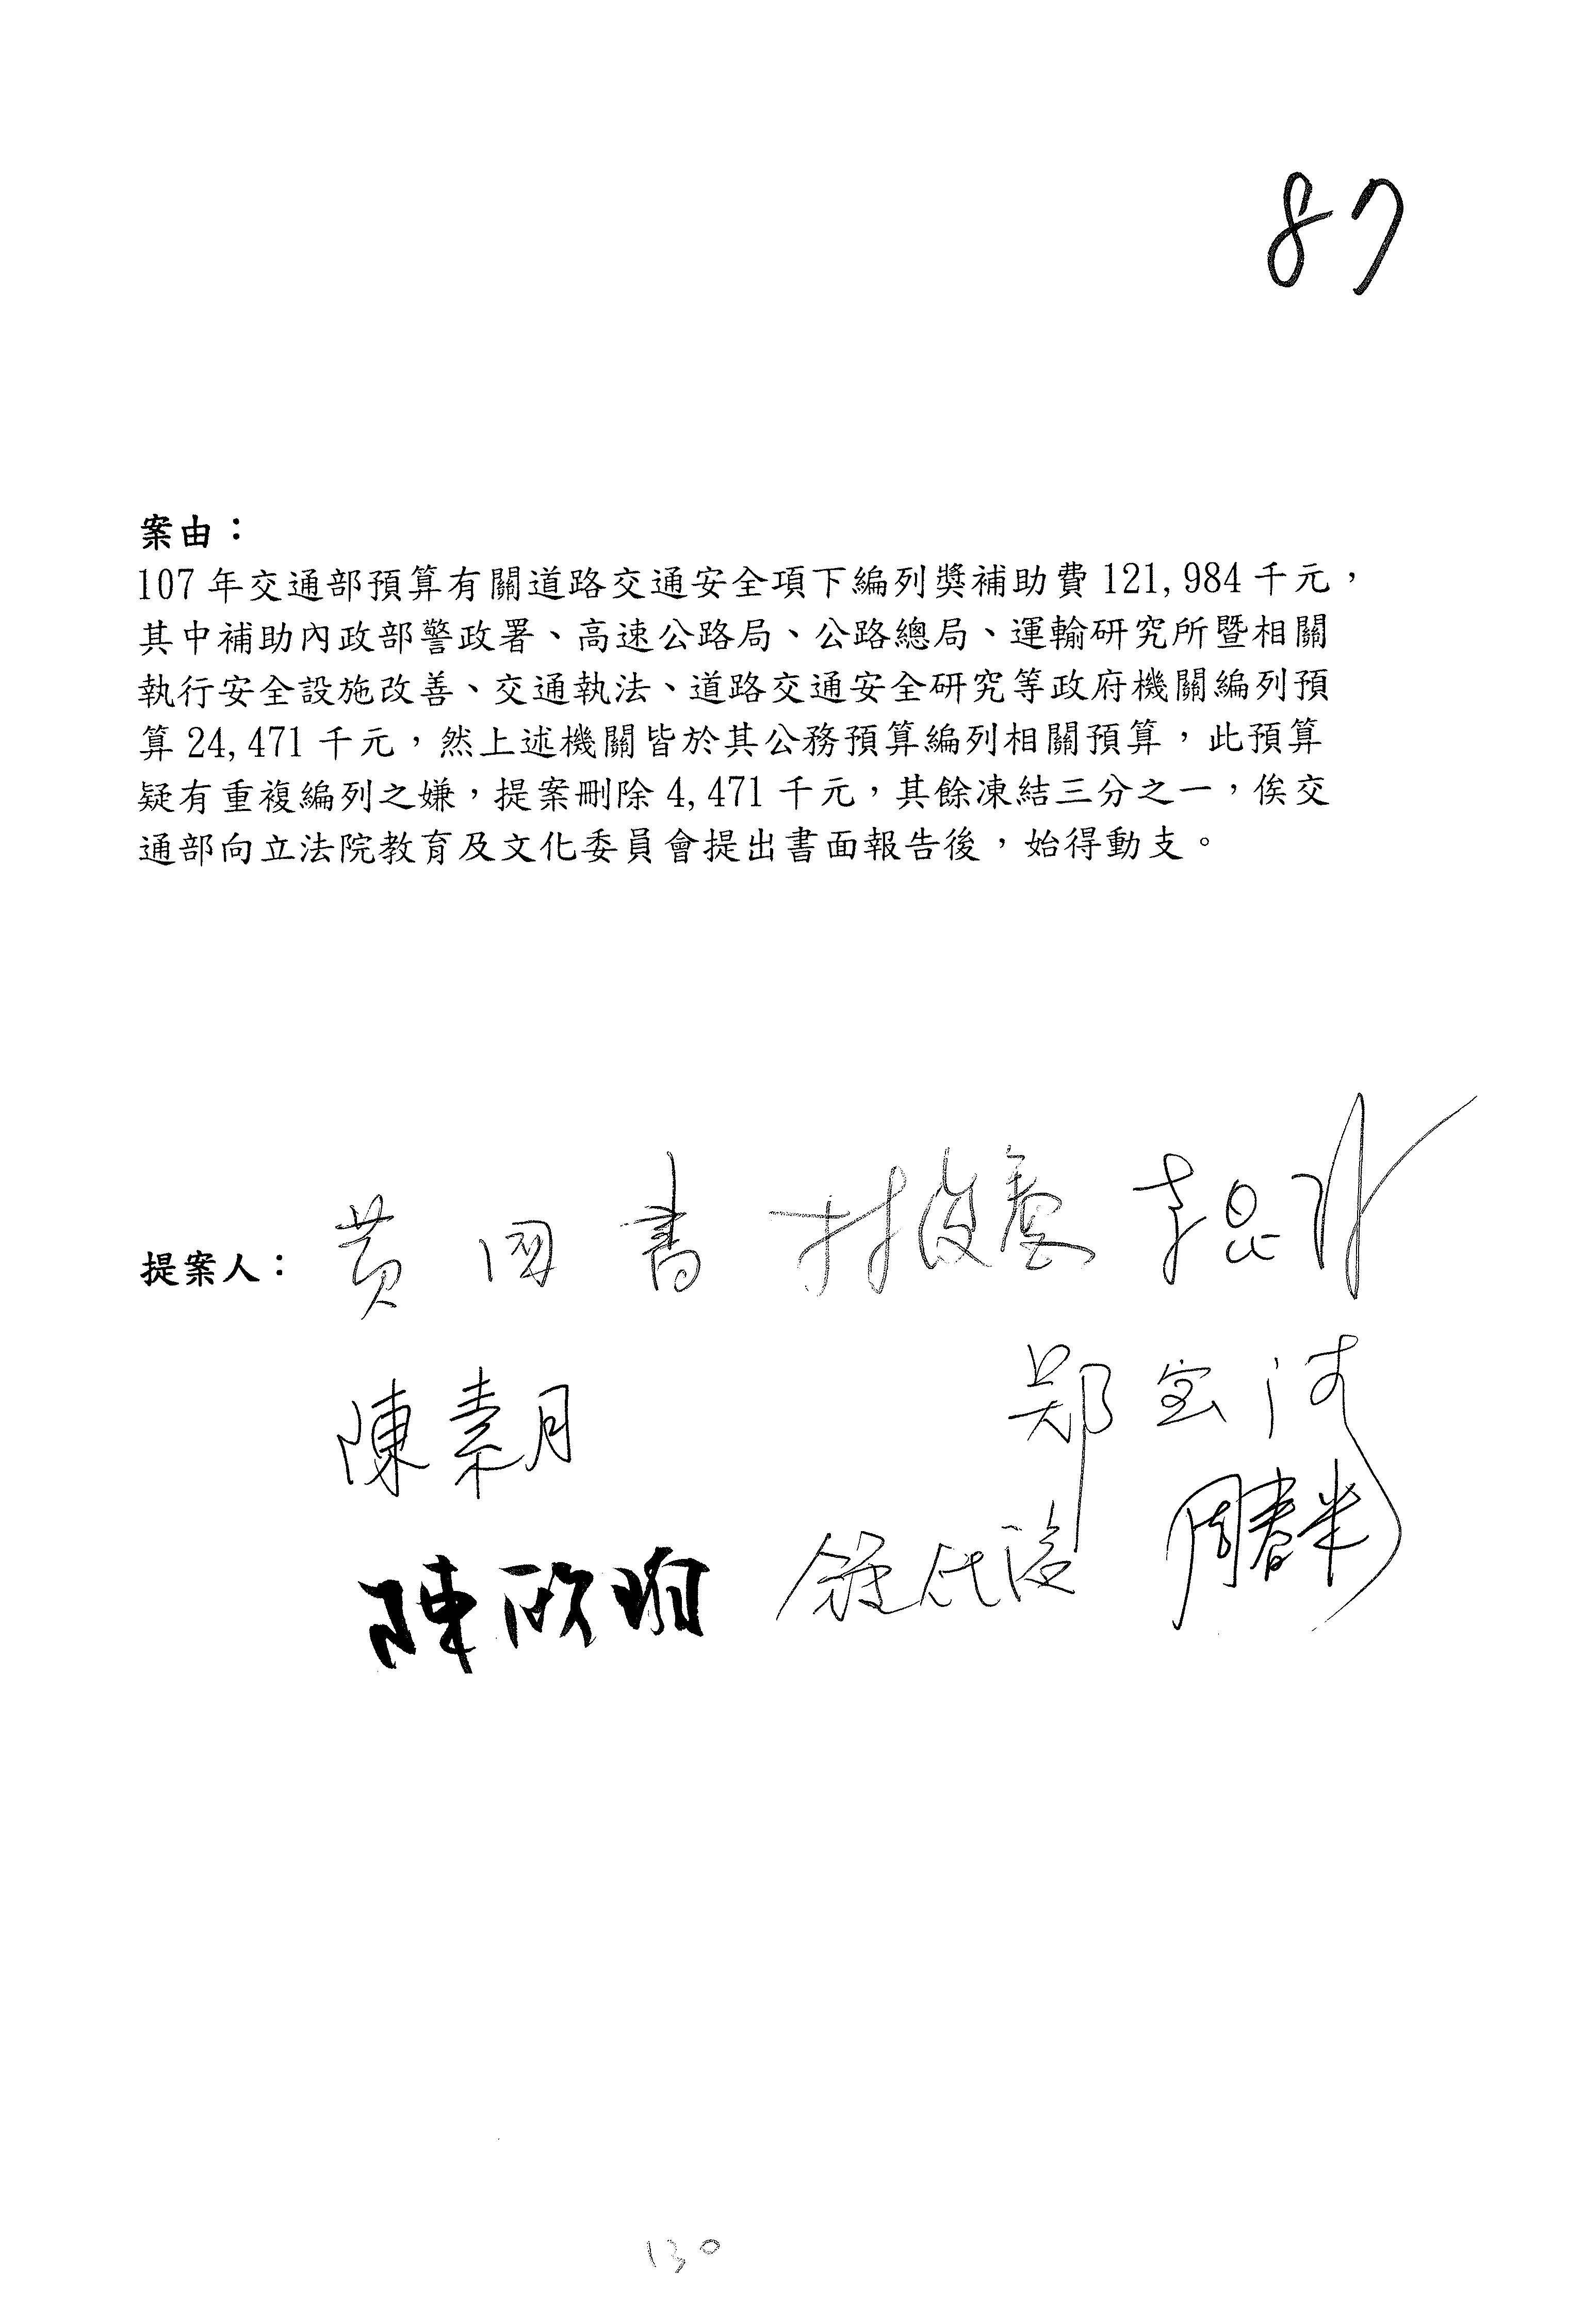 87
案由：
107 年交通部預算有關道路交通安全項下編列獎補助費 121,984 千元，
其中補助內政部警政署、高速公路局、公路總局、運輸研究所暨相關
執行安全設施改善、交通執法、道路交通安全研究等政府機關編列預
算 24,471 千元，然上述機關皆於其公務預算編列相關預算，此預算
疑有重複編列之嫌，提案刪除 4,471 千元，其餘凍結三分之一，俟交
通部向立法院教育及文化委員會提出書面報告後，始得動支。
提案人： 黃國書 林俊憲 李昆澤
陳素月 鄭宝清
陳欣瑜 鍾佳濱 周春米
130